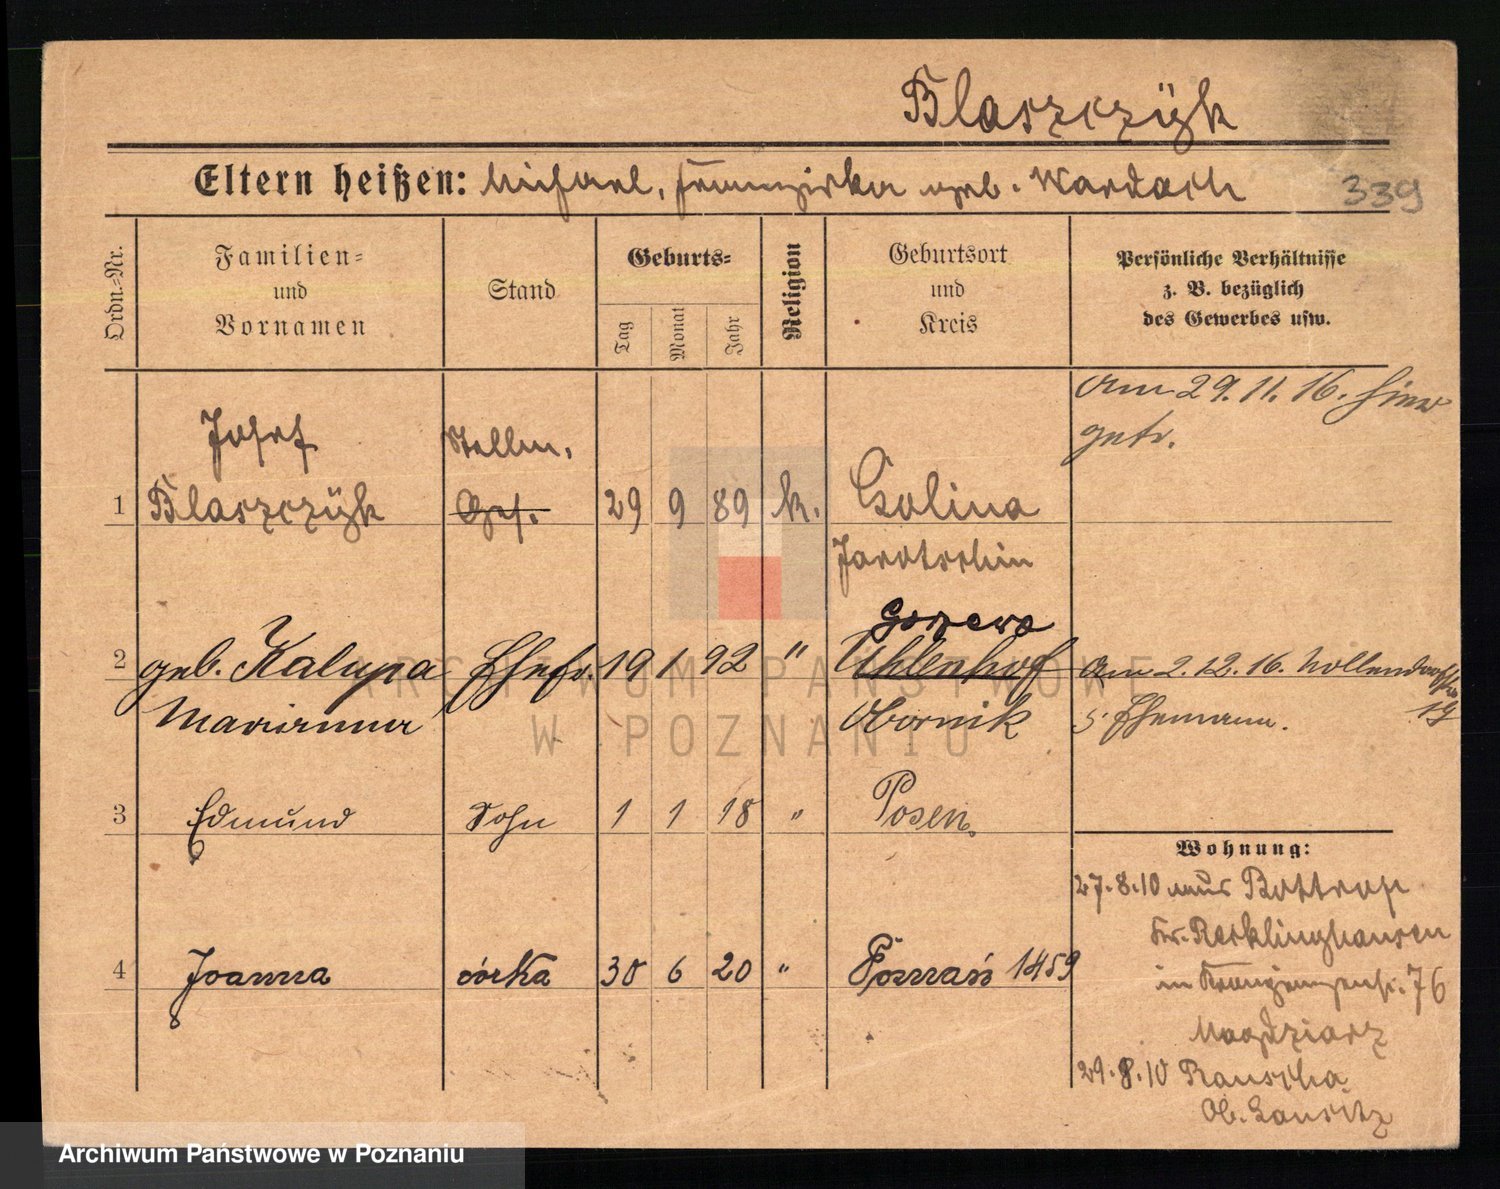 Blaszczÿk
Eltern heißen: Michael, Franziska geb. Wardach
339
Ordn.-Nr.
Familien- und Vornamen
Stand
Geburts-
Tag Monat Jahr
Religion
Geburtsort und Kreis
Persönliche Verhältnisse z. B. bezüglich des Gewerbes usw.
Am 29.11.16. hier
getr.
Josef Stellm.
1 Blaszczÿk Ges. 29 9 89 k. Golina
Jarotschin
Gorzewo
2 geb. Kalupa Ehefr. 19 1 92 " Uhlenhof Am 2.12.16. Nollendorfstr.
Marianna Obornik 19
s. Ehemann.
3 Edmund Sohn 1 1 18 " Posen.
Wohnung:
27.8.10 aus Bottrop
Kr. Recklinghausen
4 Joanna córka 30 6 20 " Poznań 1459
in 76
29.8.10 Rauscha
Ob. Lausitz
ARCHIWUM PAŃSTWOWE
W POZNANIU
Archiwum Państwowe w Poznaniu